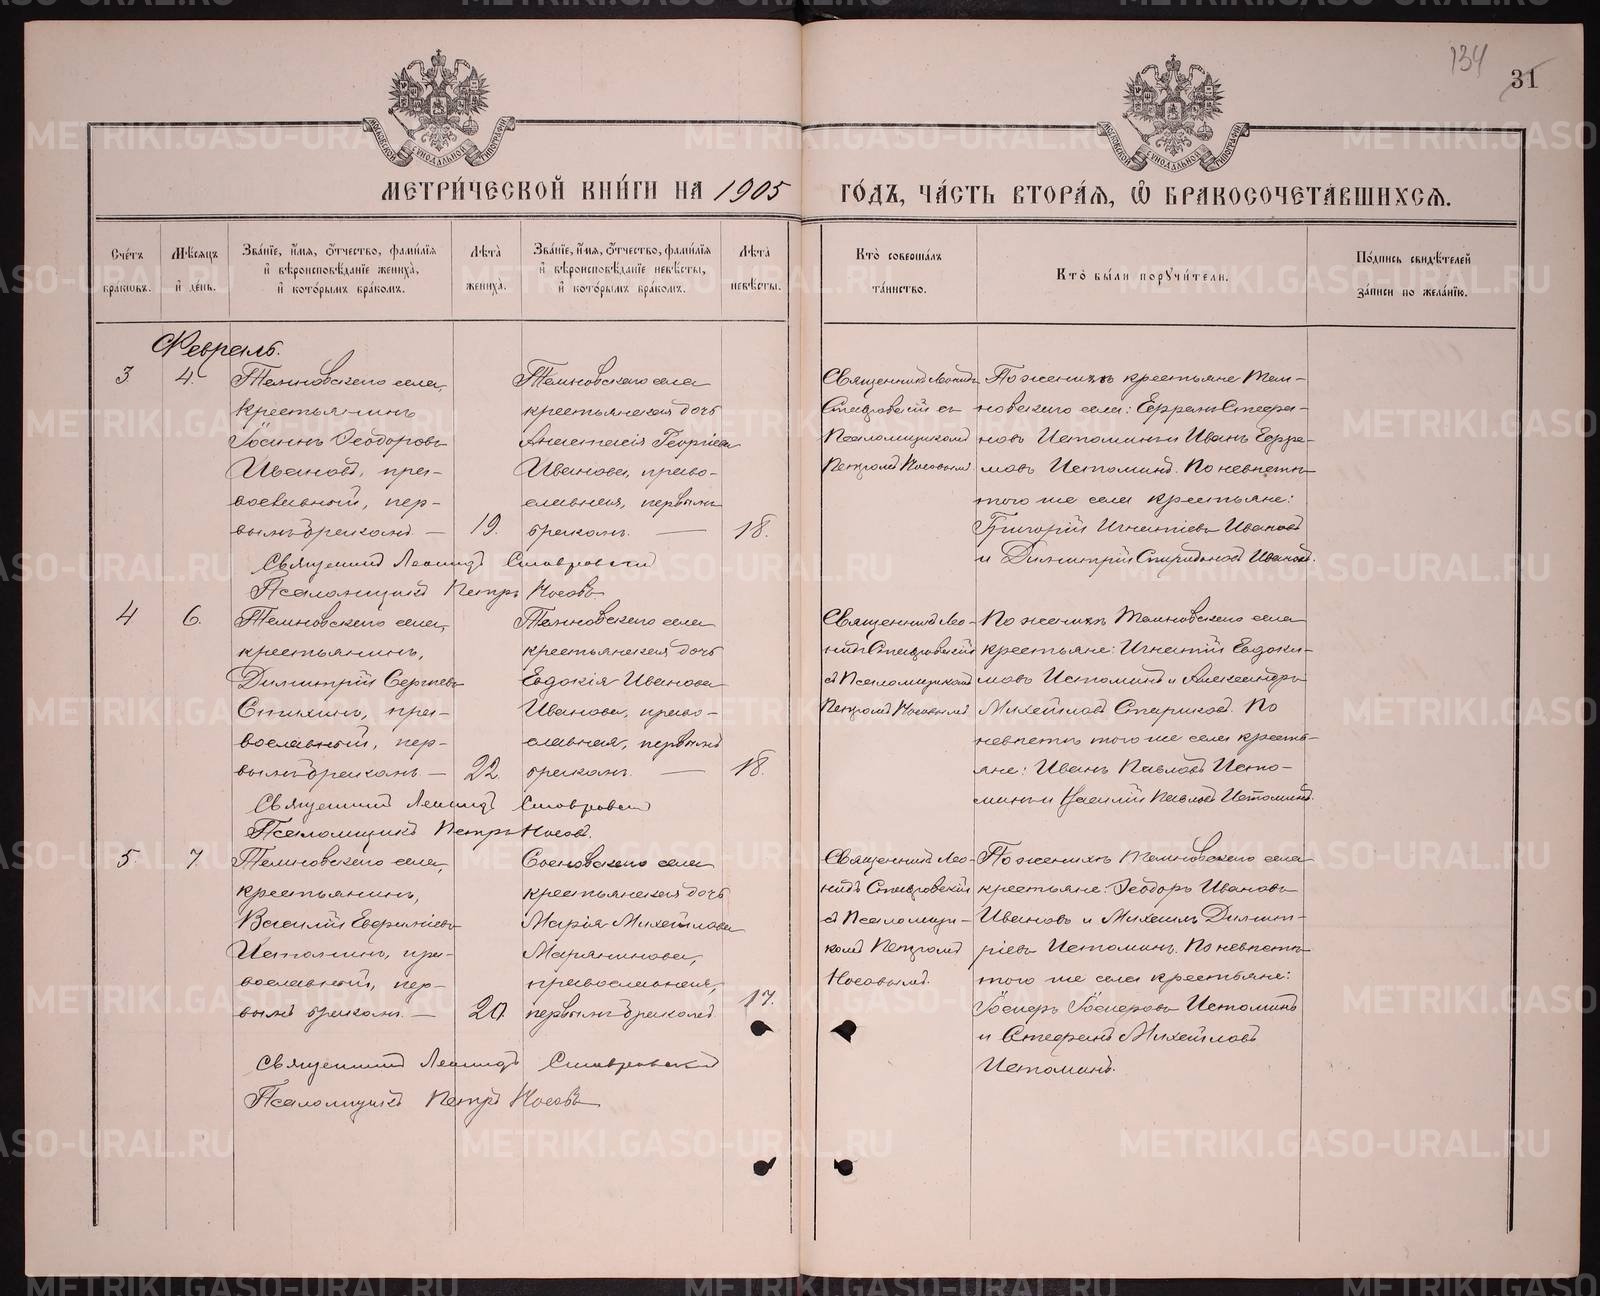 134
31
МОСКОВСКОЙ СУНОДАЛЬНОЙ ТИПОГРАФІИ
МОСКОВСКОЙ СУНОДАЛЬНОЙ ТИПОГРАФІИ
МЕТРИ́ЧЕСКОЙ КНИ́ГИ НА 1905 ГО́ДЪ, ЧА́СТЬ ВТОРА́Я, Ѽ БРАКОСОЧЕТА́ВШИХСЯ.
Сче́тъ
бра́ковъ.
Мѣ́сяцъ
и҆ де́нь.
Зва́ніе, и҆́мя, ѻ҆́тчество, фами́лія
и҆ вѣроисповѣ́даніе жениха̀,
и҆ кото́рымъ бра́комъ.
Лѣта̀
жениха̀.
Зва́ніе, и҆́мя, ѻ҆́тчество, фами́лія
и҆ вѣроисповѣ́даніе невѣ́сты,
и҆ кото́рымъ бра́комъ.
Лѣта̀
невѣ́сты.
Кто̀ соверша́лъ
та́инство.
Кто̀ бы́ли поручи́тели.
По́дпись свидѣ́телей
за́писи по жела́нію.
Февраль.
3.
4.
Темновскаго села,
крестьянинъ
Іоаннъ Ѳеодоровъ
Ивановъ, пра-
вославный, пер-
вымъ бракомъ —
19.
Темновскаго села
крестьянская дочь
Анастасія Георгіева
Иванова, право-
славная, первымъ
бракомъ. —
18.
Священникъ Леонидъ
Ставровскій съ
Псаломщикомъ
Петромъ Носовымъ.
По женихѣ крестьяне Тем-
новскаго села: Ефремъ Стефа-
новъ Истоминъ и Иванъ Ефре-
мовъ Истоминъ. По невѣстѣ
того же села крестьяне:
Григорій Игнатіевъ Ивановъ
и Димитрій Спиридоновъ Ивановъ.
Священникъ Леонидъ Ставровскій
Псаломщикъ Петръ Носовъ
4
6.
Темновскаго села,
крестьянинъ,
Димитрій Сергіевъ
Стихинъ, пра-
вославный, пер-
вымъ бракомъ —
22.
Темновскаго села
крестьянская дочь
Евдокія Иванова
Иванова, право-
славная, первымъ
бракомъ. —
18.
Священникъ Лео-
нидъ Ставровскій
съ Псаломщикомъ
Петромъ Носовымъ
По женихѣ Темновскаго села
крестьяне: Игнатій Евдоки-
мовъ Истоминъ и Александръ
Михайловъ Стариковъ. По
невѣстѣ того же села кресть-
яне: Иванъ Павловъ Исто-
минъ и Василій Павловъ Истоминъ.
Священникъ Леонидъ Ставровскій
Псаломщикъ Петръ Носовъ.
5.
7.
Темновскаго села,
крестьянинъ,
Василій Евфиміевъ
Истоминъ, пра-
вославный, пер-
вымъ бракомъ. —
20.
Сосновскаго села
крестьянская дочь
Марія Михайлова
Марянинова,
православная,
первымъ бракомъ
17.
Священникъ Лео-
нидъ Ставровскій
съ Псаломщи-
комъ Петромъ
Носовымъ.
По женихѣ Темновскаго села
крестьяне: Ѳеодоръ Ивановъ
Ивановъ и Михаилъ Димит-
ріевъ Истоминъ. По невѣстѣ
того же села крестьяне:
Іосифъ Іосифовъ Истоминъ
и Стефанъ Михайловъ
Истоминъ.
Священникъ Леонидъ Ставровскій
Псаломщикъ Петръ Носовъ
METRIKI.GASO-URAL.RU